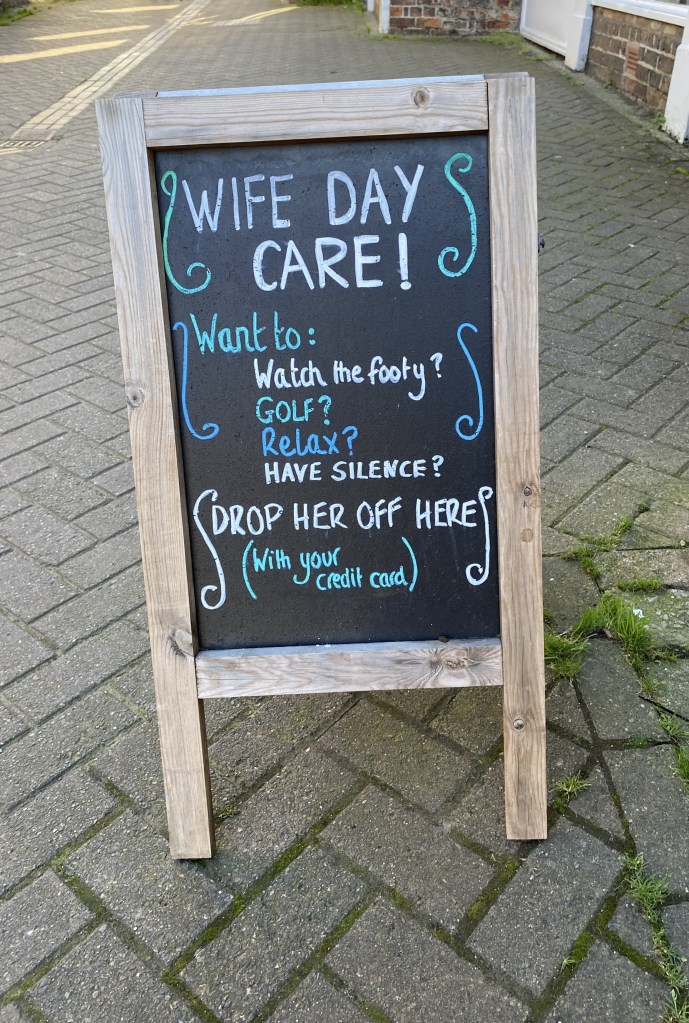 WIFE DAY
CARE!
Want to:
Watch the footy?
GOLF?
Relax?
HAVE SILENCE?
DROP HER OFF HERE
(With your
credit card)